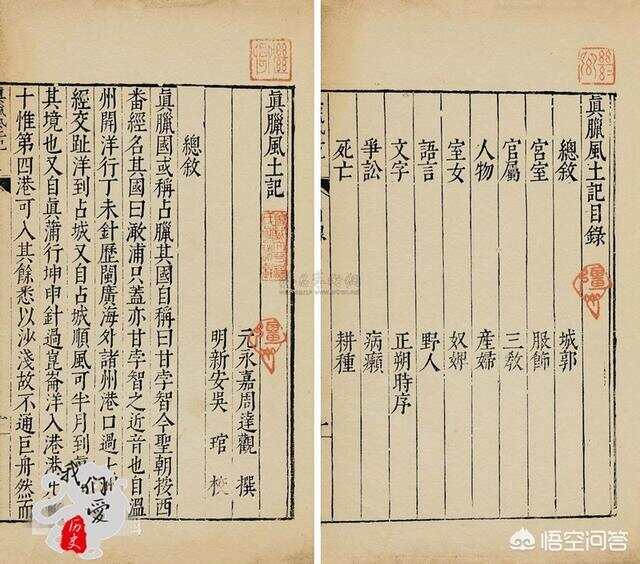 眞臘風土記目錄
總敘 城郭
宮室 服飾
官屬 三教
人物 產婦
室女 奴婢
語言 野人
文字 正朔時序
爭訟 病癩
死亡 耕種
眞臘風土記
元永嘉周達觀 撰
明新安吳 琯 校
總敘
眞臘國或稱占臘其國自稱曰甘孛智今聖朝按西
番經名其國曰澉浦只蓋亦甘孛智之近音也自溫
州開洋行丁未針歷閩廣海外諸州港口過
經交趾洋到占城又自占城順風可半月到
其境也又自眞蒲行坤申針過崑崙洋入港港
十惟第四港可入其餘悉以沙淺故不通巨舟然而
我们爱
历史
悟空问答